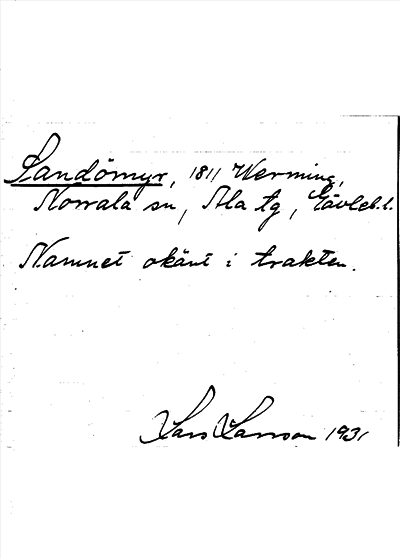 Sandömyr, 1811 Werming,
Norrala sn, Ala tg, Gävleb. l.
Namnet okänt i trakten.
Lars Larsson 1931